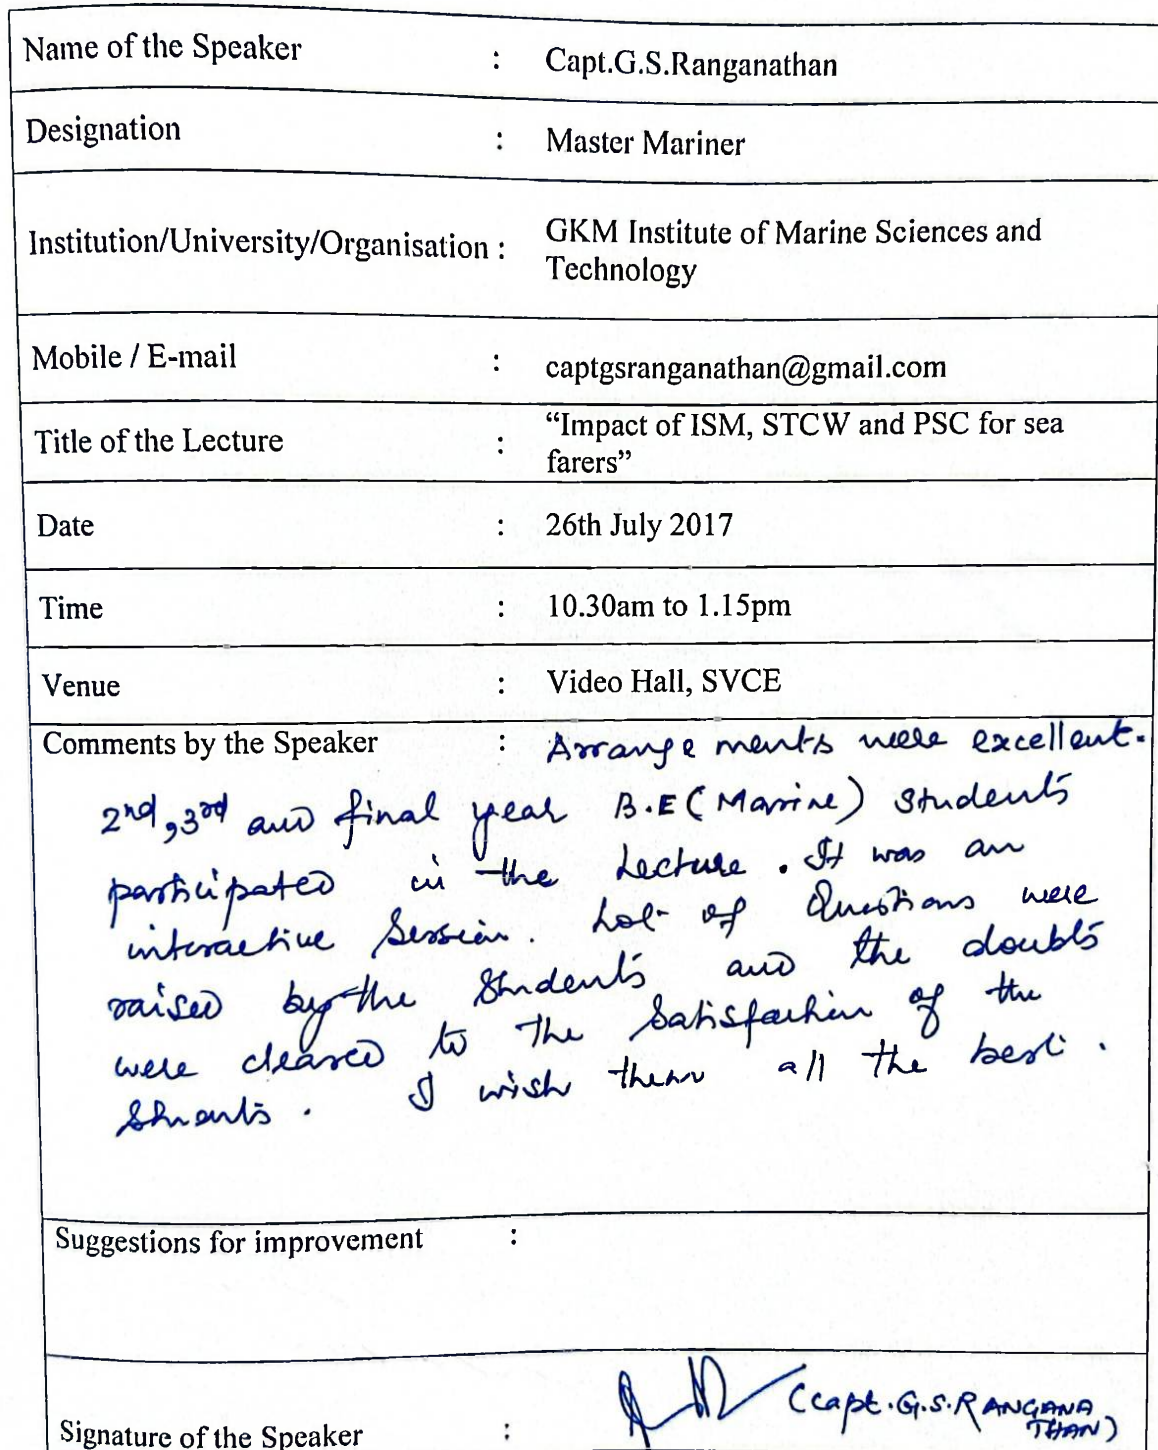 Name of the Speaker : Capt.G.S.Ranganathan
Designation : Master Mariner
Institution/University/Organisation : GKM Institute of Marine Sciences and
Technology
Mobile / E-mail : captgsranganathan@gmail.com
Title of the Lecture : “Impact of ISM, STCW and PSC for sea
farers”
Date : 26th July 2017
Time : 10.30am to 1.15pm
Venue : Video Hall, SVCE
Comments by the Speaker : Arrangements were excellent.
2nd, 3rd and final year B.E (Marine) students
participated in the Lecture. It was an
interactive Session. Lot of Questions were
raised by the Students and the doubts
were cleared to the Satisfaction of the
Stuents. I wish them all the best.
Suggestions for improvement :
Signature of the Speaker : (Capt.G.S.RANGANA
THAN)